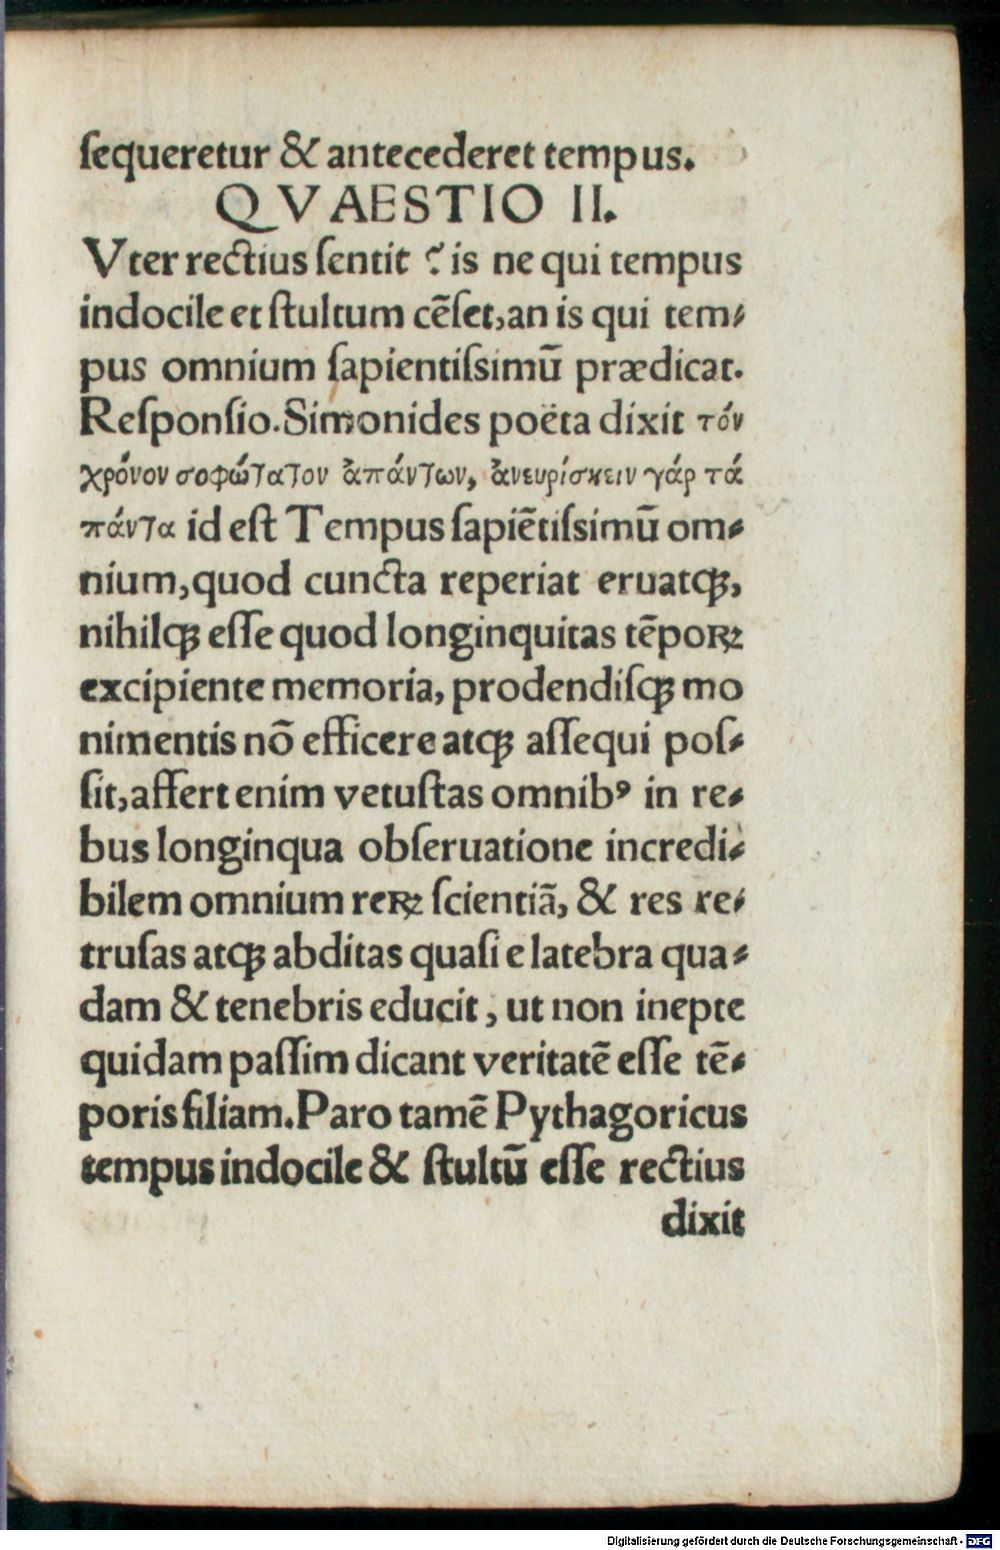 ſequeretur & antecederet tempus.
QVAESTIO II.
Vter rectius ſentit ? is ne qui tempus
indocile et ſtultum cēſet, an is qui tem⸗
pus omnium ſapientiſsimū prædicat.
Reſponſio. Simonides poëta dixit τόν
χρόνον σοφώτατον ἁπάντων, ἀνευρίσκειν γάρ τά
πάντα id eſt Tempus ſapiētiſsimū om⸗
nium, quod cuncta reperiat eruatꝗ,
nihilꝗ eſſe quod longinquitas tēpoꝝ
excipiente memoria, prodendiſꝗ mo
nimentis nō efficere atꝗ aſſequi poſ⸗
ſit, affert enim vetuſtas omnibꝰ in re⸗
bus longinqua obſeruatione incredi⸗
bilem omnium reꝝ ſcientiā, & res re⸗
truſas atꝗ abditas quaſi e latebra qua⸗
dam & tenebris educit, ut non inepte
quidam paſſim dicant veritatē eſſe tē⸗
poris filiam. Paro tamē Pythagoricus
tempus indocile & ſtultū eſſe rectius
dixit
Digitalisierung gefördert durch die Deutsche Forschungsgemeinschaft - DFG